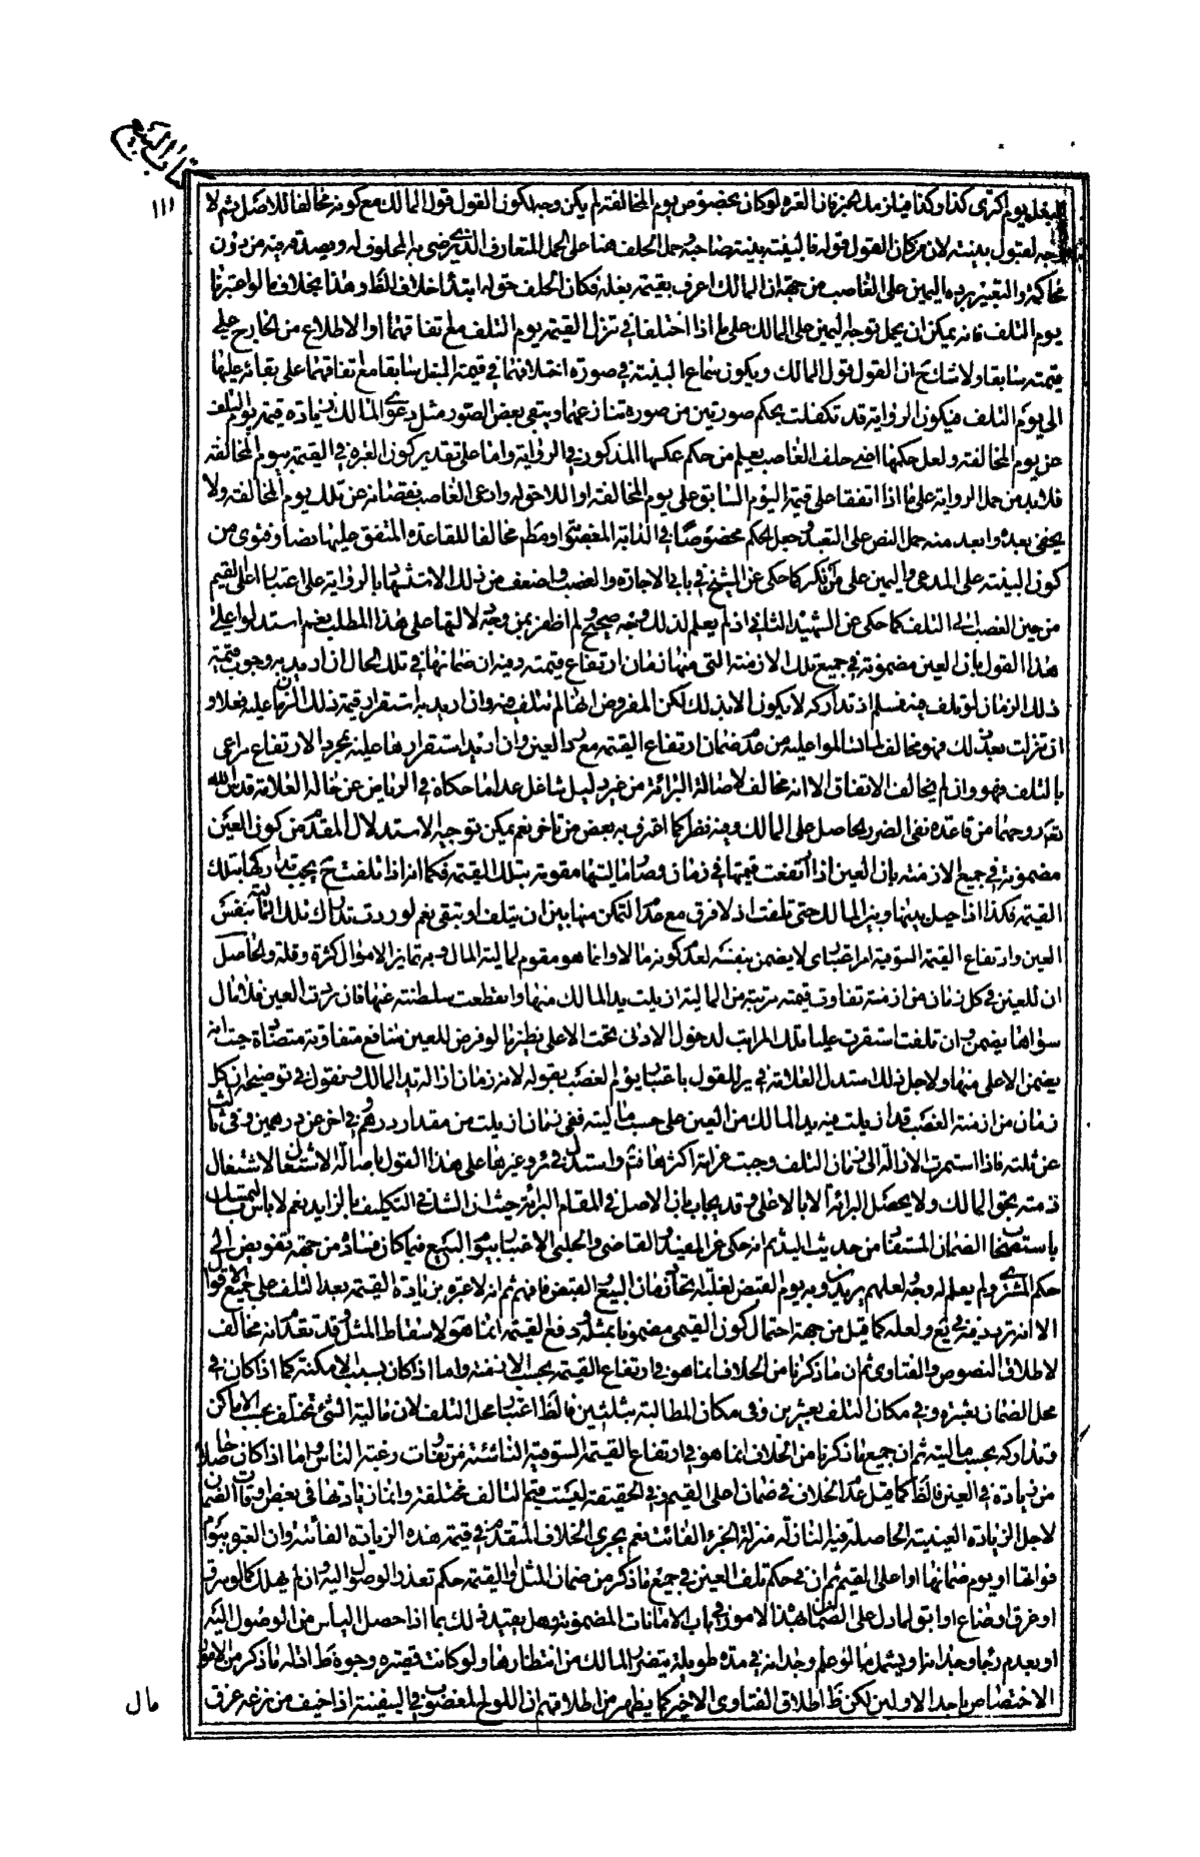 كتاب البيع
١١١
البغل يوم اكترى كذا وكذا فيلزمك هجز بان العبرة لو كان بخصوص يوم المخالفة لم يكن وجه لكون القول قول المالك مع كونه مخالفا للاصل ثم لا
وجه لقبول بينته لان من كان القول قوله فالبينة بينة صاحبه وحمل الحلف هنا على الحلف المتعارف الذى يرضى به المحلوف له ويصدقه فيه من دون
محاكمة والتعبير برده اليمين على الغاصب من جهة ان المالك اعرف بقيمة بغله فكان الحلف حق له ابتداء خلاف الظ وهذا بخلاف ما لو اعتبرنا
يوم التلف فانه يمكن ان يحمل توجه اليمين على المالك على ما اذا اختلفا فى تنزل القيمة يوم التلف مع اتفاقهما او الاطلاع من الخارج على
قيمته سابقا ولا شك ح ان القول قول المالك ويكون سماع البينة فى صورة اختلافهما فى قيمة البغل سابقا مع اتفاقهما على بقائه عليها
الى يوم التلف فيكون الرواية قد تكفلت بحكم صورتين من صورة تنازعهما ويبقى بعض الصور مثل دعوى المالك زيادة قيمة يوم التلف
عن يوم المخالفة ولعل حكمها اعنى حلف الغاصب يعلم من حكم عكسها المذكور فى الرواية واما على تقدير كون العبرة فى القيمة بيوم المخالفة
فلا بد من حمل الرواية على ما اذا اتفقا على قيمة اليوم السابق على يوم المخالفة او اللاحق له وادعى الغاصب نقصانه عن تلك يوم المخالفة ولا
يخفى بعده وابعد منه حمل النص على التعبد وجعل الحكم مخصوصا فى الدابة المغصوبة او مط مخالفا للقاعدة المتفق عليها نصا وفتوى من
كون البينة على المدعى واليمين على من انكر كما حكى عن الشيخ فى باب الاجارة والغصب واضعف من ذلك الاستشهاد بالرواية على اعتبار اعلى القيم
من حين الغصب الى التلف كما حكى عن الشهيد الثانى اذ لم يعلم لذلك وجه صحيح ولم اظهر بمن وجه دلالتها على هذا المطلب نعم استدلوا على
هذا القول بان العين مضمونة فى جميع تلك الازمنة التى منها زمان ارتفاع قيمته وفيه ان ضمانها فى تلك الحال ان اريد به وجوب قيمة
ذلك الزمان لو تلف فيه فمسلم اذ تداركه لا يكون الا بذلك لكن المفروض انها لم تتلف فيه وان اريد به استقرار قيمة ذلك الزمان عليه فعلا و
ان تنزلت بعد ذلك فهو مخالف لما تسالموا عليه من عدم ضمان ارتفاع القيمة مع رد العين وان اريد استقرارها عليه بمجرد الارتفاع مراعى
بالتلف فهو وان لم يخالف الاتفاق الا انه مخالف لاصالة البرائة من غير دليل شاغل عدا ما حكاه فى الرياض عن خاله العلامة قدس الله
تعه روحهما من قاعدة نفى الضرر الحاصل على المالك وفيه نظر كما اعترف به بعض من تاخر نعم يمكن توجيه الاستدلال المتقدم من كون العين
مضمونة فى جميع الازمنة بان العين اذا ارتفعت قيمتها فى زمان وصار ماليتها مقومة بتلك القيمة فكما انه اذا تلفت ح يجب تداركها بتلك
القيمة فكذا اذا حيل بينها وبين المالك حتى تلفت اذ لا فرق مع عدم التمكن منها بين ان يتلف او تبقى نعم لو ردت تدارك تلك المالية بنفس
العين وارتفاع القيمة السوقية امر اعتبارى لا يضمن بنفسه لعدم كونه مالا وانما هو مقوم لمالية المال وبه تمايز الاموال كثرة وقلة والحاصل
ان للعين فى كل زمان من ازمنة تفاوت قيمته مرتبة من المالية ازيلت يد المالك منها وانقطعت سلطنته عنها فان ردت العين فلا مال
سواها يضمن وان تلفت استقرت عليها تلك المراتب لدخول الادنى تحت الاعلى نظير ما لو فرض للعين منافع متفاوتة متضادة حيث انه
يضمن الاعلى منها ولاجل ذلك استدل العلامة فى ير للقول باعتبار يوم الغصب بقوله لانه زمان ازالة يد المالك ونقول فى توضيحه ان كل
زمان من ازمنة الغصب قد ازيلت فيه يد المالك من العين على حسب ماليته ففى زمان ازيلت من مقدار درهم وفى اخر عن درهمين وفى ثالث
عن ثلثة فاذا استمرت الازالة الى زمان التلف وجبت غرامة اكثرها فتم واستدل فى ئر وغيرها على هذا القول باصالة الاشتغال لاشتغال
ذمته بحق المالك ولا يحصل البرائة الا بالاعلى وقد يجاب بان الاصل فى المقام البرائة حيث ان الشك فى التكليف بالزايد نعم لا باس بالتمسك
باستصحاب الضمان المستفاد من حديث اليد ثم انه حكى عن المفيد والقاضى والحلبى الاعتبار بيوم البيع فيما كان فساده من جهة تفويض
حكم المشترى ولم يعلم له وجه ولعلهم يريدون به يوم القبض لغلبة اتحاد زمان البيع والقبض فافهم ثم انه لا عبرة بزيادة القيمة بعد التلف على جميع الاقوال
الا انه تردد فيه فى يع ولعله كما قيل من جهة احتمال كون القيمى مضمونا بمثله ودفع القيمة انما هو لاسقاط المثل وقد تقدم انه مخالف
لاطلاق النصوص والفتاوى ثم ان ما ذكرنا من الخلاف انما هو فى ارتفاع القيمة بحسب الازمنة واما اذا كان بسبب الامكنة كما اذا كان فى
محل الضمان بعشرة وفى مكان التلف بعشرين وفى مكان المطالبة بثلثين فالظ اعتبار محل التلف لان مالية الشئ تختلف بحسب الاماكن
وتداركه بحسب ماليته ثم ان جميع ما ذكرنا من الخلاف انما هو فى ارتفاع القيمة السوقية الناشئة من تفاوت رغبة الناس واما اذا كان حاصلا
من زيادة فى العين فالظ كما قيل عدم الخلاف فى ضمان اعلى القيم وفى الحقيقة ليست قيم التالف مختلفة وانما زيادتها فى بعض اوقات الضمان
لاجل الزيادة العينية الحاصلة فيه النازلة منزلة الجزء الفائت نعم يجرى الخلاف المتقدم فى قيمة هذه الزيادة الفائتة وان العبرة بيوم
فواتها او يوم ضمانها او اعلى القيم ثم ان فى حكم تلف العين فى جميع ما ذكر من ضمان المثل والقيمة حكم تعذر الوصول اليه وان لم يهلك كما لو سرق
او غرق او ضاع او ابق لما دل على الضمان بهذه الامور فى باب الامانات المضمونة وهل يقيد ذلك بما اذا حصل الياس من الوصول اليه
او بعدم رجاء وجدانه او يشمل ما لو علم وجدانه فى مدة طويلة يتضرر المالك من انتظارها ولو كانت قصيرة وجوه ظ ادلة ما ذكر من الامور
الاختصاص باحد الاولين لكن ظ اطلاق الفتاوى الاخير كما يظهر من اطلاقهم ان اللوح المغصوب فى السفينة اذا خيف من نزعه غرق
مال